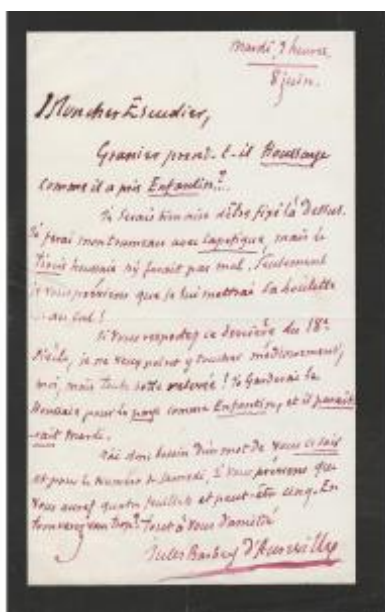 Mardi, 9 heures,
8 juin.
Mon cher Escudier,
Granier prend-t-il Houssaye
comme il a pris Enfantin?
Je serais bien aise d'être fixé là dessus.
Je ferai mon trumeau avec Capefigue, mais le
houssaie n'y ferait pas mal. Seulement
je vous préviens que je lui mettrai la houlette
au cul!
Si vous respectez ce derrière du 18e
Siècle, je ne veux point y toucher
moi, mais toute cotte relevée! Je garderais le
Houssaie pour le pays comme Enfantin, et il paraî-
trait mardi.
J'ai donc besoin d'un mot de vous ce soir
et pour le numéro de Samedi, je vous préviens que
vous aurez quatre feuillets et peut-être cinq. En
trouverez-vous trop? Tout à vous d'amitié
Jules Barbey d'Aurevilly